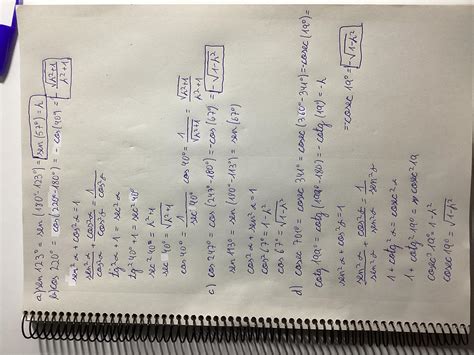 a) sen 123° = sen (180°-123°) = sen(57°) = h
b) cos 220° = cos(220°-180°) = -cos(40°) = -√h²+1 / h²+1
sen²α + cos²α = 1
sen²α/cos²α + cos²α/cos²α = 1/cos²α
tg²α + 1 = sec²α
tg²40° + 1 = sec²40°
sec²40° = h²+1
sec 40° = √h²+1
cos 40° = 1/sec 40° cos 40° = 1/√h²+1 √h²+1/h²+1
c) cos 247° = cos (247°-180°) = -cos(67°) = -√1-h²
sen 113° = sen (180°-113°) = sen(67°)
sen²α + cos²α = 1
cos²67° = 1-h²
cos 67° = √1-h²
d) cosec 701° = cosec 341° = cosec (360°-341°) = -cosec(19°) =
= -cosec 19° = -√1-h²
cotg 199° = cotg (199°-180°) = cotg (19°) = -h
sen²α + cos²α = 1
sen²α/sen²α + cos²α/sen²α = 1/sen²α
1 + cotg²α = cosec²α
1 + cotg²19° = cosec²19
cosec²19° = 1-h²
cosec 19° = √1-h²